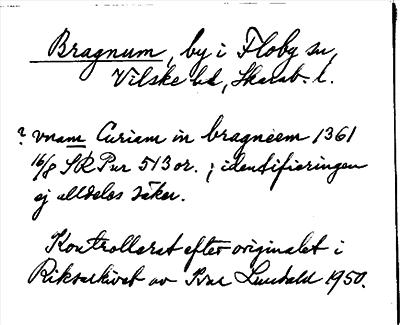 Bragnum, by i Floby sn,
Vilske hd, Skarab. l.
? vnam Curiam in bragneem 1361
16/8 SRP nr 513 or. ; identifieringen
ej alldeles säker.
Kontrollerat efter originalet i
Riksarkivet av Ivar Lundahl 1950.